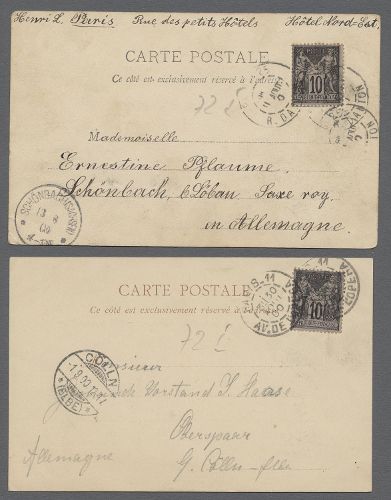 Henri L. Paris Rue des petits Hôtels Hôtel Nord-Est,
CARTE POSTALE
Ce côté est exclusivement réservé à l'adresse
10
72 L
Mademoiselle
Ernestine Pflaume,
Schönbach, b/Löban Saxe roy.
en Allemagne.
SCHÖNBACH (SACHSEN)
13 8
00
CARTE POSTALE
Ce côté est exclusivement réservé à l'adresse
10
11
AV. DE L'OPERA
72 L
CÖLLN
1.9.00
(ELBE)
Monsieur
Vorstand J. Haase
Oberspaar
Allemagne